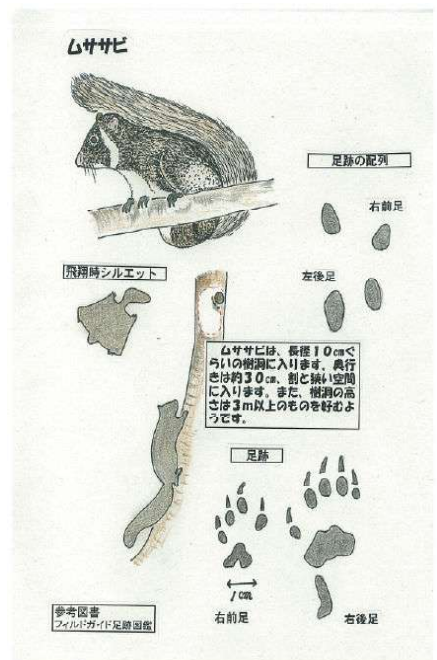 ムササビ
足跡の配列
右前足
左後足
飛翔時シルエット
ムササビは、長径10cmぐ
らいの樹洞に入ります。奥行
きは約30cm、割と狭い空間
に入ります。また、樹洞の高
さは3m以上のものを好むよ
うです。
足跡
1cm
右前足
右後足
参考図書
フィルドガイド足跡図鑑